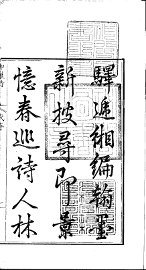 驛遞緗編翰墨
新披尋即景
憶春巡詩人林